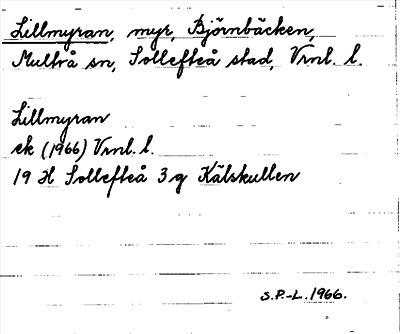 Lillmyran, myr, Björnbäcken,
Multrå sn, Sollefteå stad, Vrnl. l.
Lillmyran
ek (1966) Vrnl. l.
19 H Sollefteå 3 g Kälskullen
S.P.-L. 1966.